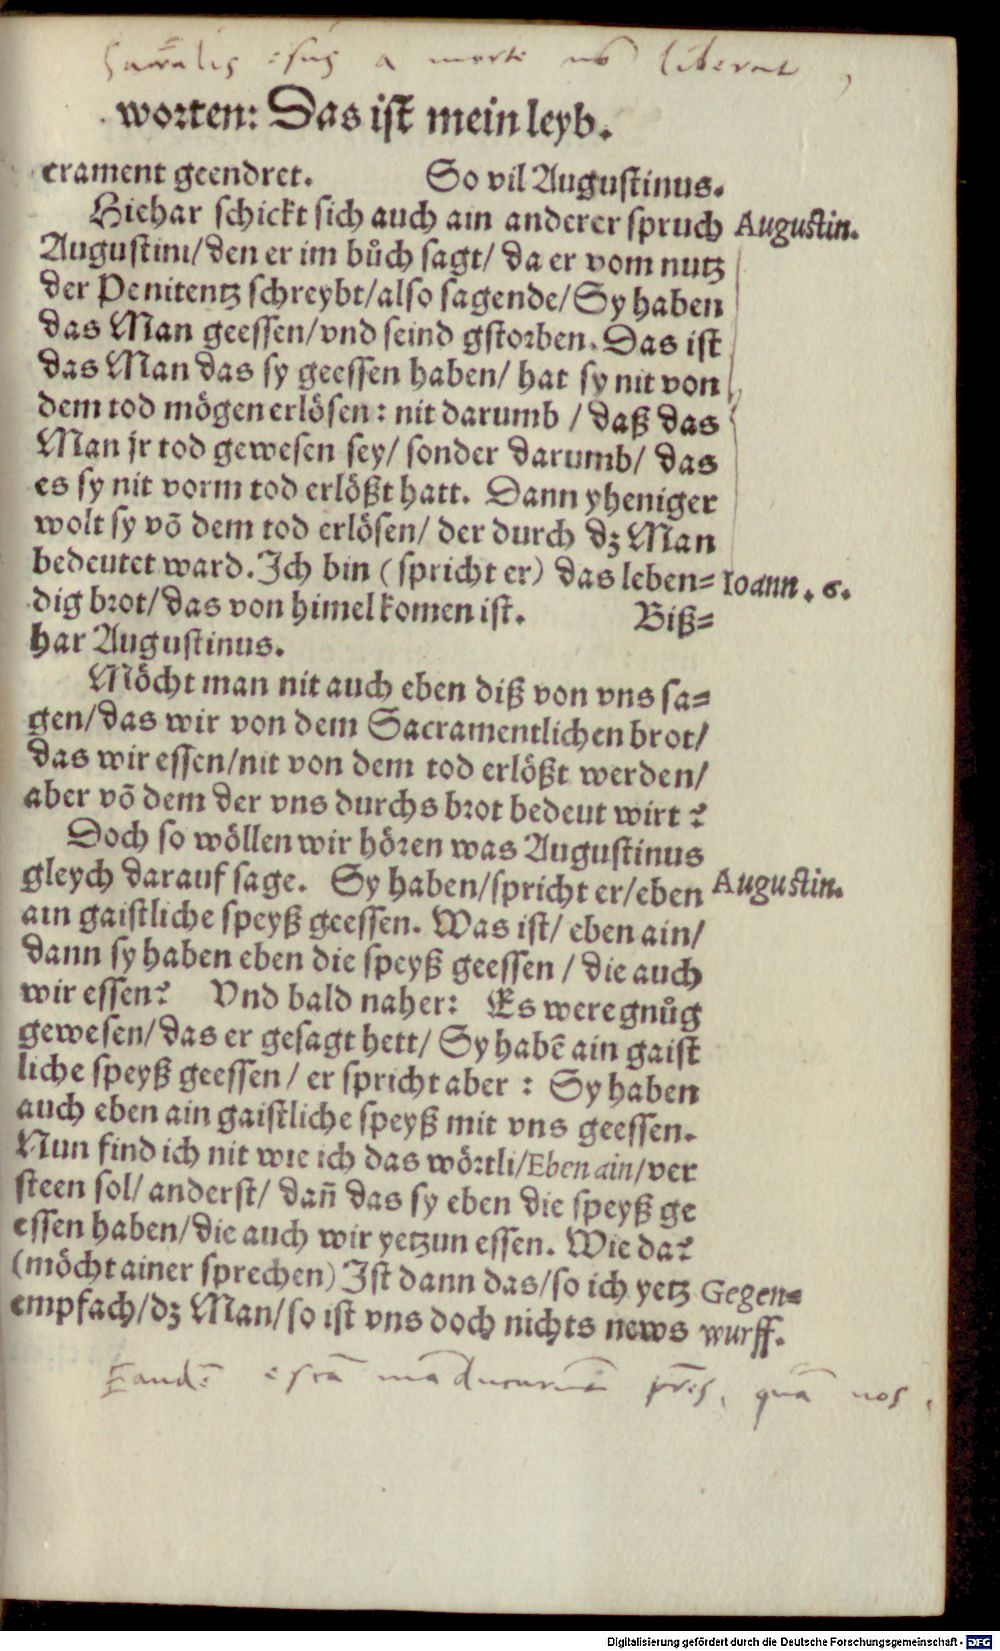 esus a morte nos liberat,
worten: Das ist mein leyb.
crament geendret. So vil Augustinus.
Hiehar schickt sich auch ain anderer spruch Augustin.
Augustini/den er im bůch sagt/ da er vom nutz
der Penitentz schreybt/also sagende/Sy haben
das Man geessen/vnd seind gstorben. Das ist
das Man das sy geessen haben/ hat sy nit von
dem tod mögen erlösen: nit darumb / daß das
Man jr tod gewesen sey/ sonder darumb/ das
es sy nit vorm tod erlößt hatt. Dann yheniger
wolt sy võ dem tod erlösen/ der durch dz Man
bedeutet ward. Ich bin (spricht er) das leben= Ioann. 6.
dig brot/das von himel komen ist. Biß=
har Augustinus.
Möcht man nit auch eben diß von vns sa=
gen/das wir von dem Sacramentlichen brot/
das wir essen/nit von dem tod erlößt werden/
aber võ dem der vns durchs brot bedeut wirt?
Doch so wöllen wir hören was Augustinus
gleych darauf sage. Sy haben/spricht er/eben Augustin.
ain gaistliche speyß geessen. Was ist/ eben ain/
dann sy haben eben die speyß geessen / die auch
wir essen? Vnd bald naher: Es were gnůg
gewesen/das er gesagt hett/ Sy habẽ ain gaist
liche speyß geessen / er spricht aber : Sy haben
auch eben ain gaistliche speyß mit vns geessen.
Nun find ich nit wie ich das wörtli/Eben ain/ver
steen sol/ anderst/ dañ das sy eben die speyß ge
essen haben/die auch wir yetzun essen. Wie da?
(möcht ainer sprechen) Ist dann das/so ich yetz Gegen=
empfach/dz Man/so ist vns doch nichts news wurff.
Eandẽ escã mãducarũt pr̃es, quã nos.
Digitalisierung gefördert durch die Deutsche Forschungsgemeinschaft - DFG